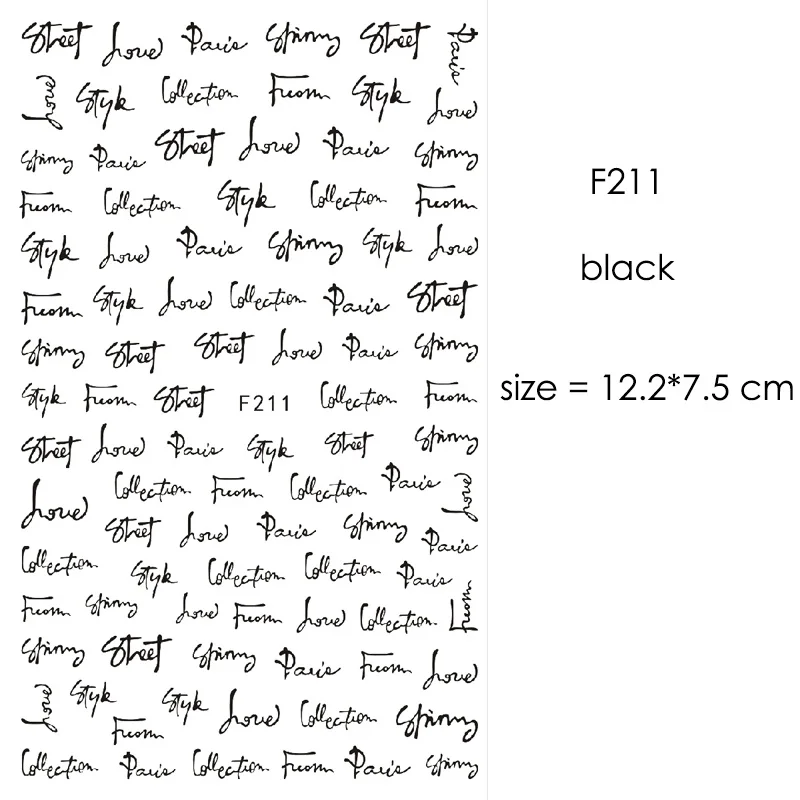 Street Love Paris Spinny Street Paris
Love Style Collection From Style Love
Spinny Paris Street Love Paris Spinny
From Collection Style Collection From
Style Love Paris Spinny Style Love
From Style Love Collection Paris Street
Spinny Street Street Love Paris Spinny
Style From Street F211 Collection From
Street Love Paris Style Street Spinny
Love Collection From Collection Paris Love
Street Love Paris Spinny Paris
Collection Style Collection Collection Paris
From Spinny Love From Love Collection From
Spinny Street Spinny Paris From Love
Love Style From Style Love Collection Spinny
Collection Paris Collection From Paris Spinny
F211
black
size = 12.2*7.5 cm